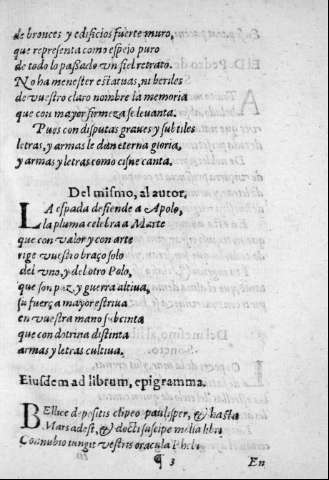 de bronces y edificios fuerte muro,
que representa como espejo puro
de todo lo passado un fiel retrato.
No ha menester estatuas, ni beriles
de vuestro claro nombre la memoria
que con mayor firmeza se leuanta.
Pues con disputas graues y subtiles
letras, y armas le dan eterna gloria,
y armas y letras como cisne canta.
Del mismo, al autor.
LA espada defiende a Apolo,
la pluma celebra a Marte
que con valor y con arte
rige vuestro braço solo
del vno, y del otro Polo,
que son paz, y guerra altiua,
su fuerça mayor estriua
en vuestra mano subcinta
que con dotrina distinta
armas y letras cultiua.
Eiusdem ad librum, epigramma.
BEllice depositis clipeo paulisper, & hasta
Mars adest, & docti suscipe libri
Connubio iungit vestris oracula Phebi
¶ 3 En